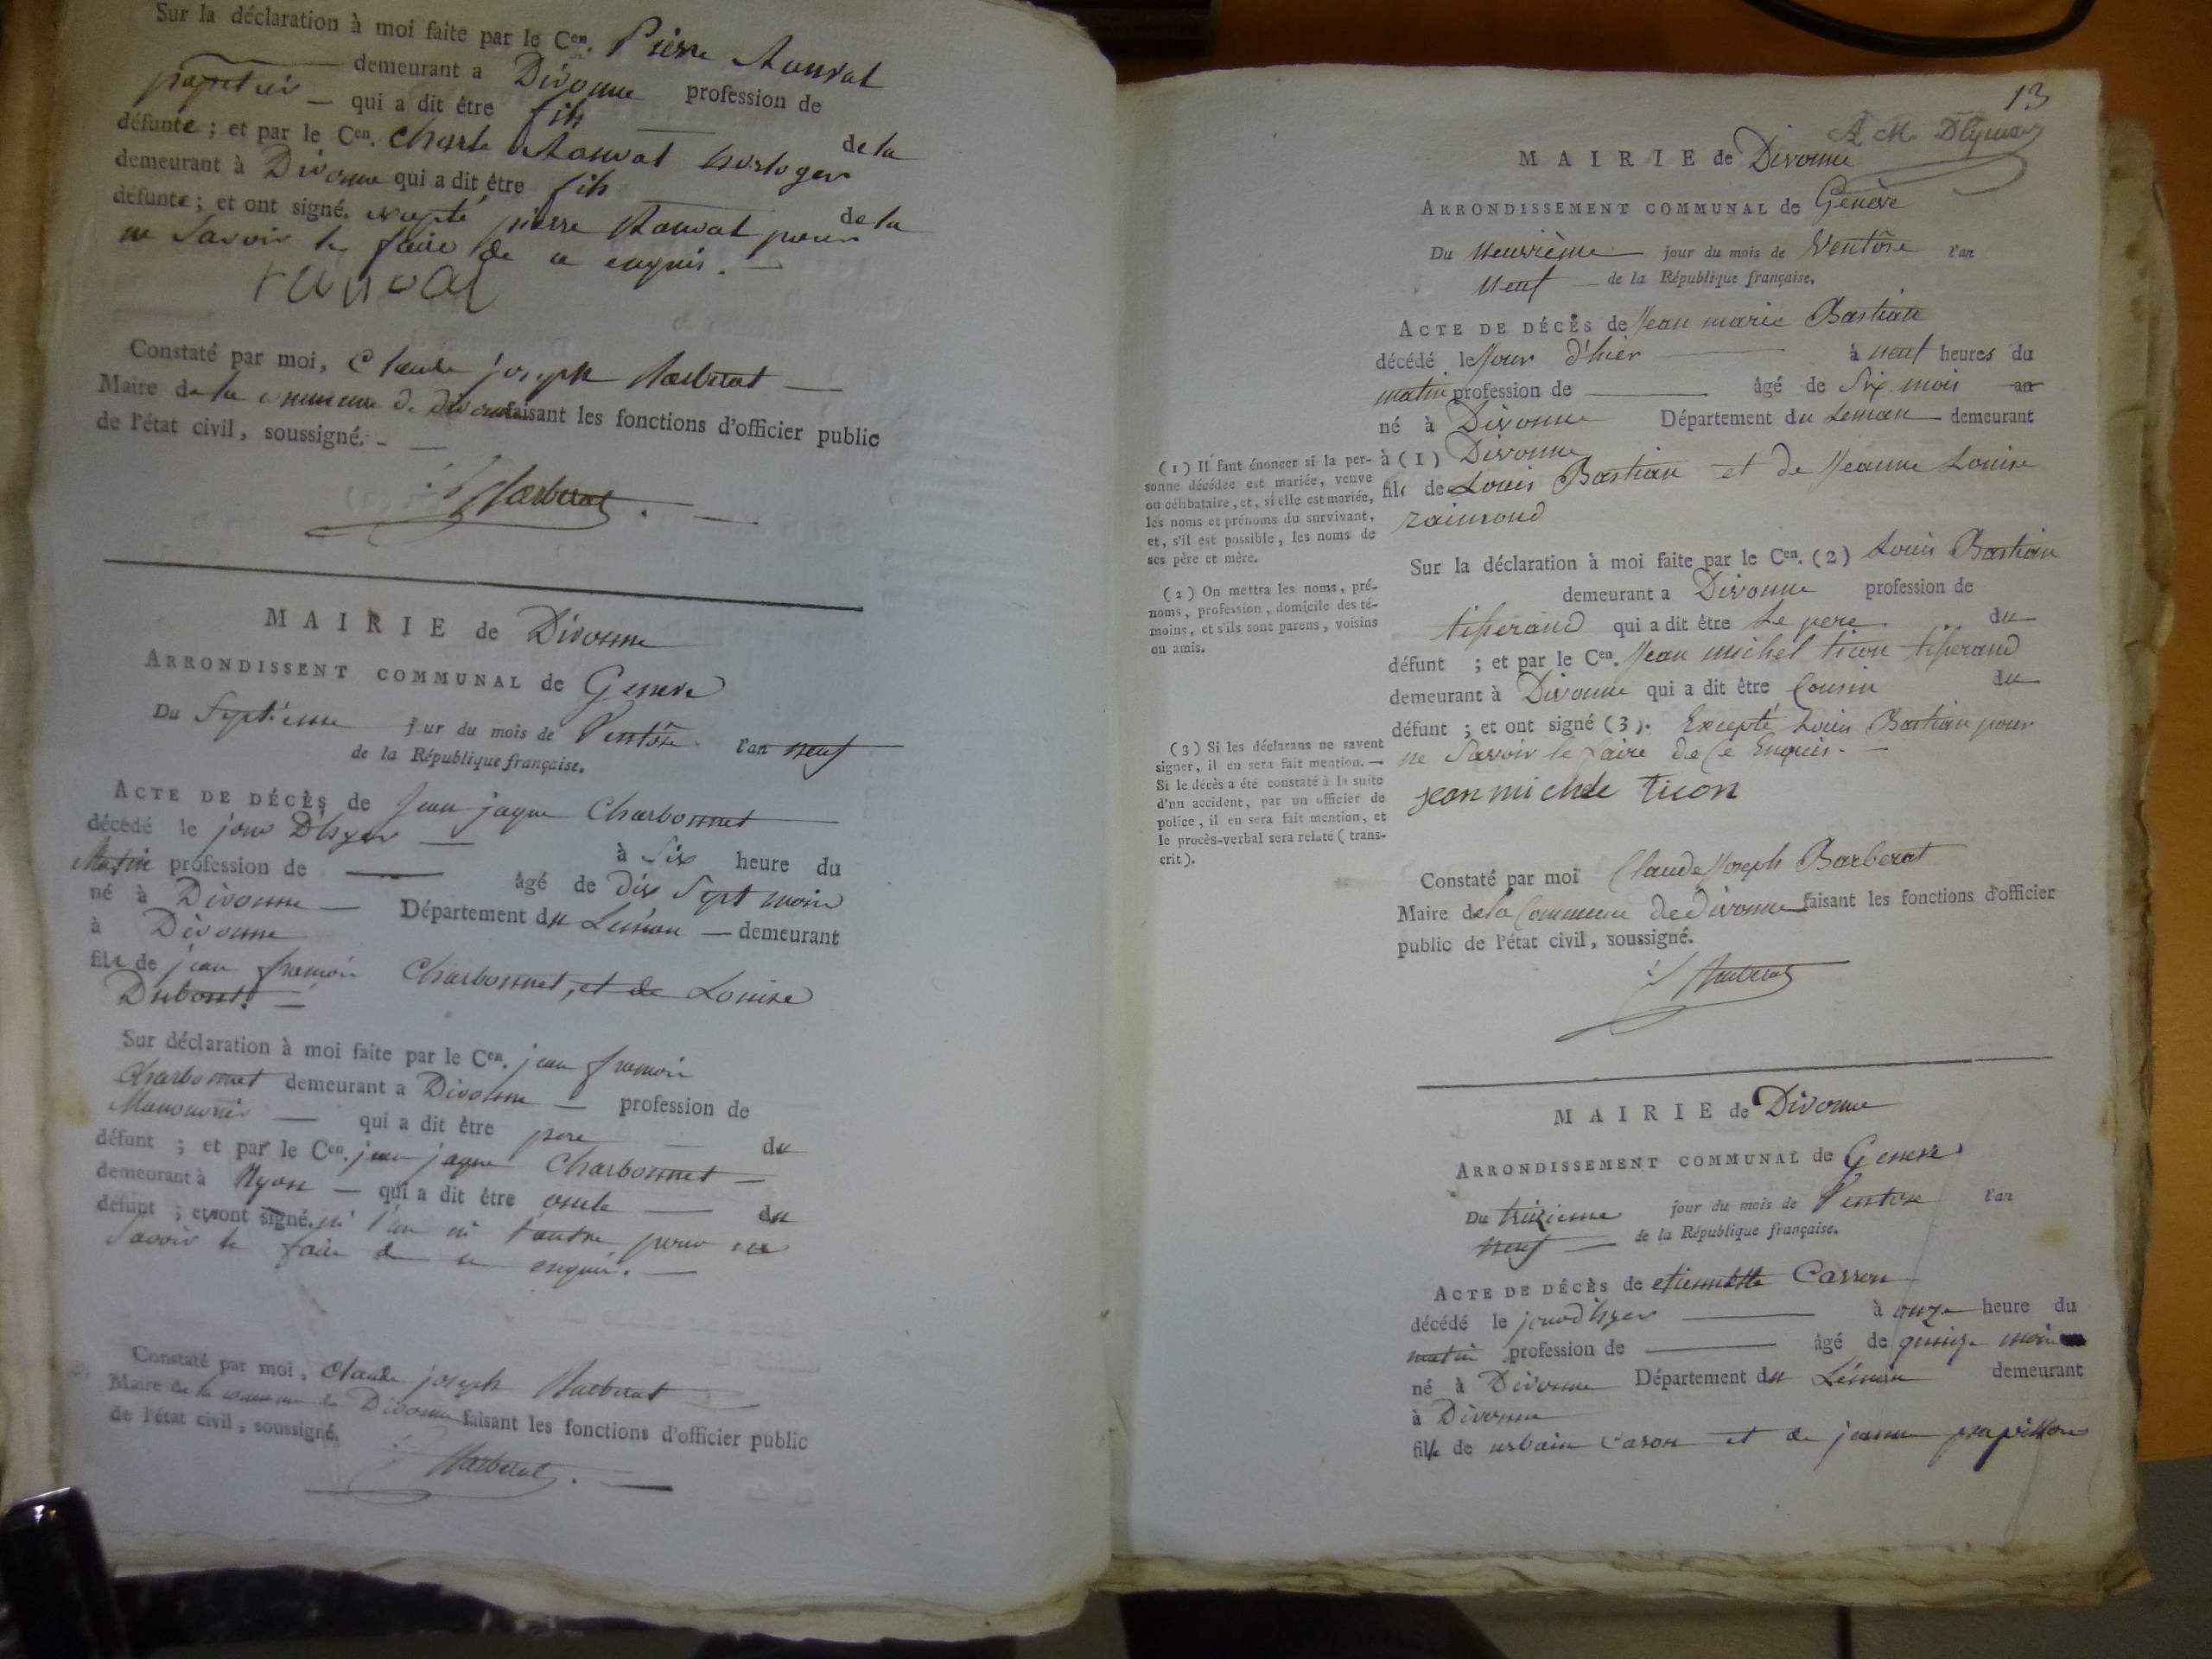 Sur la déclaration à moi faite par le Cen. Pierre
demeurant a Divonne profession de
qui a dit être fils de la
défunte ; et par le Cen. Charle horloger
demeurant à Divonne qui a dit être fils de la
défunte ; et ont signé. excepté pierre pour
ne Savoir le faire de ce enquis.
Constaté par moi, Claude joseph Barberat
Maire de la commune de divonne faisant les fonctions d'officier public
de l'état civil, soussigné.
Barberat
MAIRIE de Divonne
ARRONDISSENT COMMUNAL de Geneve
Du Septieme jour du mois de Ventôse l'an neuf
de la République française.
ACTE DE DÉCÈS de Jean jaque Charbonnet
décédé le jour D'hyer à Six heure du
Matin profession de âgé de dix Sept mois
né à Divonne Département du Léman demeurant
à Divonne
fils de jean francois Charbonnet, et de Louise
Dubout.
Sur déclaration à moi faite par le Cen. jean francois
Charbonnet demeurant a Divonne profession de
Manouvrier qui a dit être pere du
défunt ; et par le Cen. jean jaque Charbonnet
demeurant à Nyon qui a dit être oncle du
défunt ; et ont signé. ni l'un ni l'autre pour ne
Savoir le faire de ce enquis.
Constaté par moi, Claude joseph Barberat
Maire de la commune de Divonne faisant les fonctions d'officier public
de l'état civil, soussigné.
Barberat
13
MAIRIE de Divonne
ARRONDISSEMENT COMMUNAL de Genève
Du Neuvième jour du mois de Ventôse l'an
Neuf de la République française.
ACTE DE DÉCÈS de Jean marie Bastian
décédé le Jour d'hier à neuf heures du
matin profession de âgé de Six mois an
né à Divonne Département du Leman demeurant
à (1) Divonne
fils de Louis Bastian et de Jeanne Louise
raimond
(1) Il faut énoncer si la per-
sonne décédée est mariée, veuve
ou célibataire, et, si elle est mariée,
les noms et prénoms du survivant,
et, s'il est possible, les noms de
ses père et mère.
Sur la déclaration à moi faite par le Cen. (2) Louis Bastian
demeurant a Divonne profession de
tisserand qui a dit être Le pere du
défunt ; et par le Cen. Jean michel ticon tisserand
demeurant à Divonne qui a dit être Cousin du
défunt ; et ont signé (3). Excepté Louis Bastian pour
ne Savoir le faire de Ce Enquis.
jean michele ticon
(2) On mettra les noms, pré-
noms, profession, domicile des té-
moins, et s'ils sont parens, voisins
ou amis.
(3) Si les déclarans ne savent
signer, il en sera fait mention. —
Si le décès a été constaté à la suite
d'un accident, par un officier de
police, il en sera fait mention, et
le procès-verbal sera relaté (trans-
crit).
Constaté par moi Claude Joseph Barberat
Maire de la Commune de Divonne faisant les fonctions d'officier
public de l'état civil, soussigné.
Barberat
MAIRIE de Divonne
ARRONDISSEMENT COMMUNAL de Geneve
Du treizieme jour du mois de Ventose l'an
neuf de la République française.
ACTE DE DÉCÈS de etiennette Carron
décédé le jour d'hyer à onze heure du
matin profession de âgé de quinze mois
né à Divonne Département du Léman demeurant
à Divonne
fille de urbain Caron et de jeanne papillon